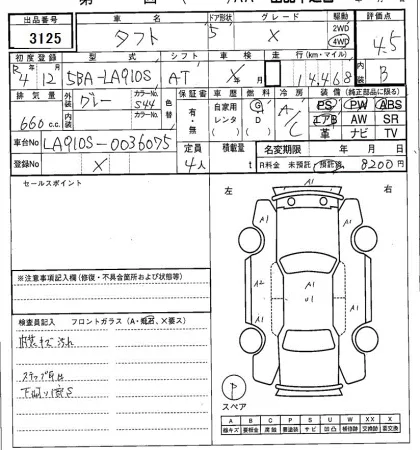 出品番号 車名 ドア形状 グレード 駆動 評価点
3125 タフト 5 X 2WD 4WD 4.5
初度登録 型式 シフト 車検 走行(km・マイル) 内装
R4年12月 5BA-LA910S AT X 14,468 B
排気量 外装 グレー カラーNo. S44 色替 保証書 車歴 燃料 冷房 装備(純正部品に限る)
660cc 内装 カラーNo. 有・無 自家用 レンタ ( ) G D ( ) A/C PS PW ABS
エアB AW SR
革 ナビ TV
車台No LA910S-0036075 定員 積載量 名変期限 年 月 日
登録No X 4人 t R料金 未預託 預託済 8200円
セールスポイント
左 右
A1
A1
A2 A1 A1
U1
A1
※注意事項記入欄(修復・不具合箇所および状態等)
検査員記入 フロントガラス(A・飛石、X要ス)
内装キズ汚れ
下回り錆S
P
スペア
A B C P S U W X XX X
線キズ 要板金 腐蝕 要塗装 サビ 凹凸 補修跡 交換跡 要交換